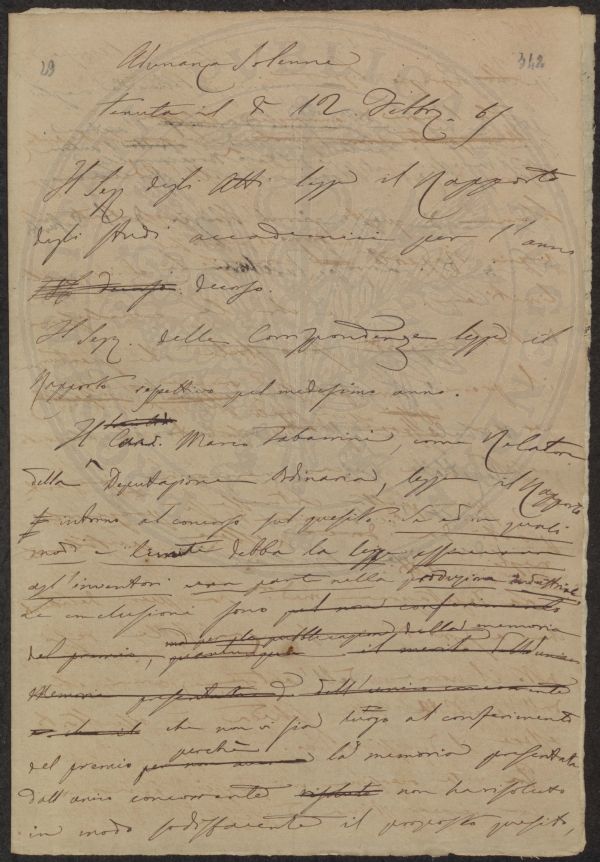 29 342
Adunanza Solenne
Tenuta il dì 12 Febbr. 65
Il Seg. degli Atti legge il Rapporto
degli studi accademici per l'anno
decorso. decorso.
Il Seg. delle Corrispondenze legge il
Rapporto respettivo pel medesimo anno.
Il Cav. Marco Tabarrini, come Relatore
della Deputazione Ordinaria, legge il Rapporto
intorno al concorso sul quesito: Se ed in quali
modi e limite debba la legge assicurare
agl'inventori una parte nella produzione industriale
Le conclusioni sono pel non conferimento
ma per la pubblicazione della memoria
del premio, quantunque il merito dell'unica
Memoria presentata dall'unico concorrente
che non vi sia luogo al conferimento
perchè
del premio per non avere la memoria presentata
dall'unico concorrente non ha risoluto
in modo sodisfacente il proposto quesito,